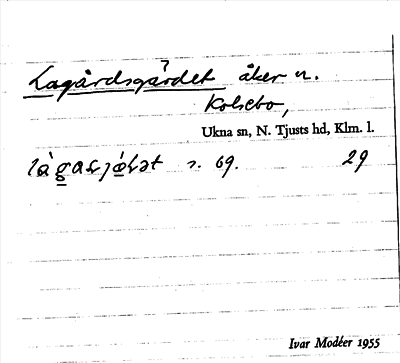 Lagårdsgärdet åker n.
Kolsebo,
Ukna sn, N. Tjusts hd, Klm. l.
s. 69. 29
Ivar Modéer 1955